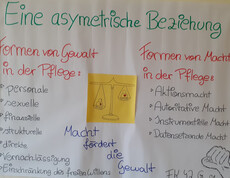 Eine asymetrische Beziehung
Formen von Gewalt
in der Pflege:
personale
sexuelle
finanzielle
strukturelle
direkte
Vernachlässigung
Einschränkung des freien Willens
Formen von Macht
in der Pflege:
Aktionsmacht
Autoritative Macht
Instrumentelle Macht
Datensetzende Macht
Macht
fördert
die
Gewalt